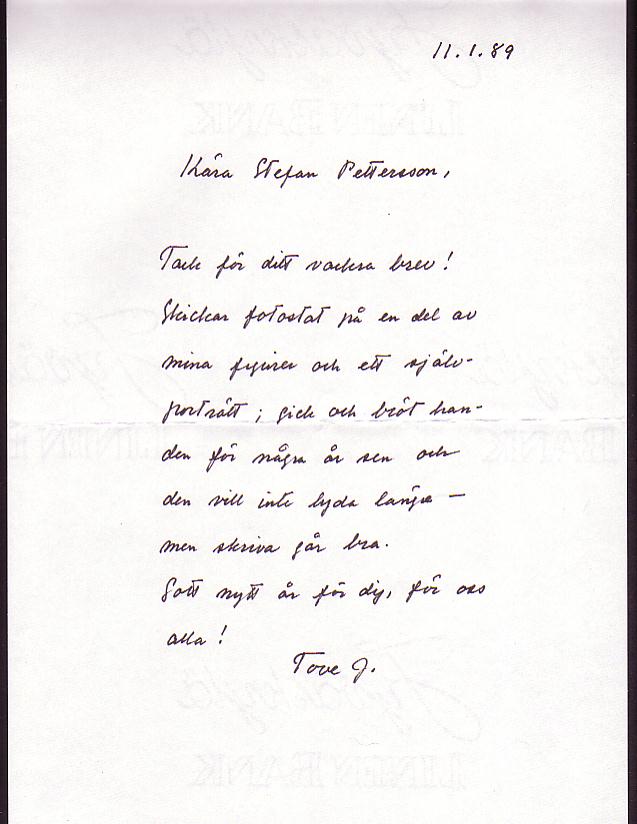 11.1.89
Kära Stefan Pettersson,
Tack för ditt vackra brev!
Skickar fotostat på en del av
mina figurer och ett själv-
porträtt; gick och bröt han-
den för några år sen och
den vill inte lyda längre —
men skriva går bra.
Gott nytt år för dig, för oss
alla!
Tove J.
LINEN BANK
LINEN BANK
LINEN BANK